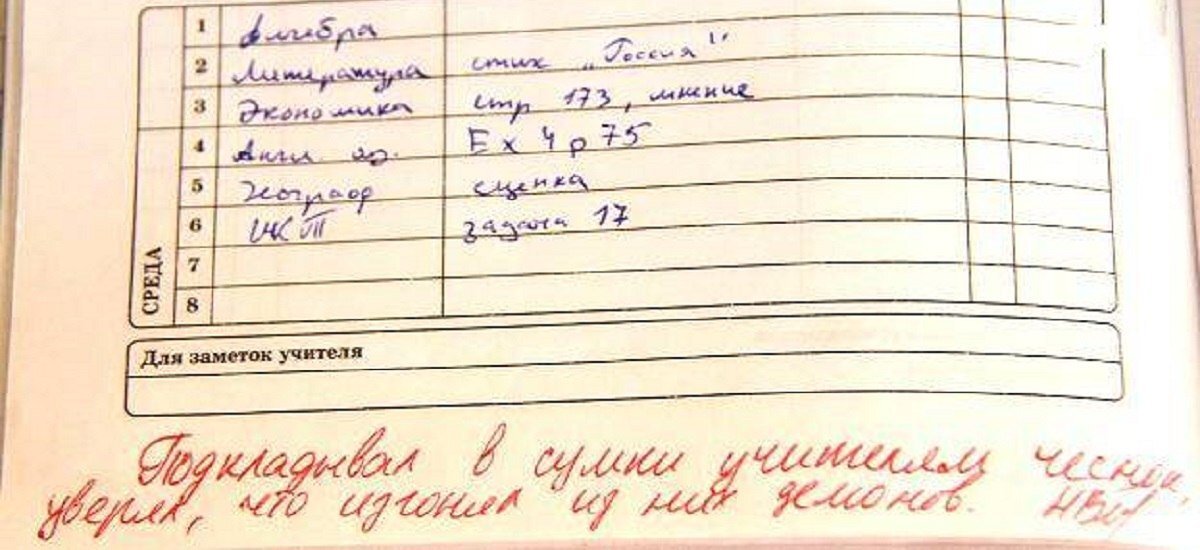 1 Алгебра
2 Литература стих „Россия"
3 Экономика стр 173, мнение
4 Англ яз. Ex 4 p 75
5 Географ сценка
6 ИКТ задача 17
7
СРЕДА
8
Для заметок учителя
Подкладывал в сумки учителям чеснок,
уверял, что изгонял из них демонов.